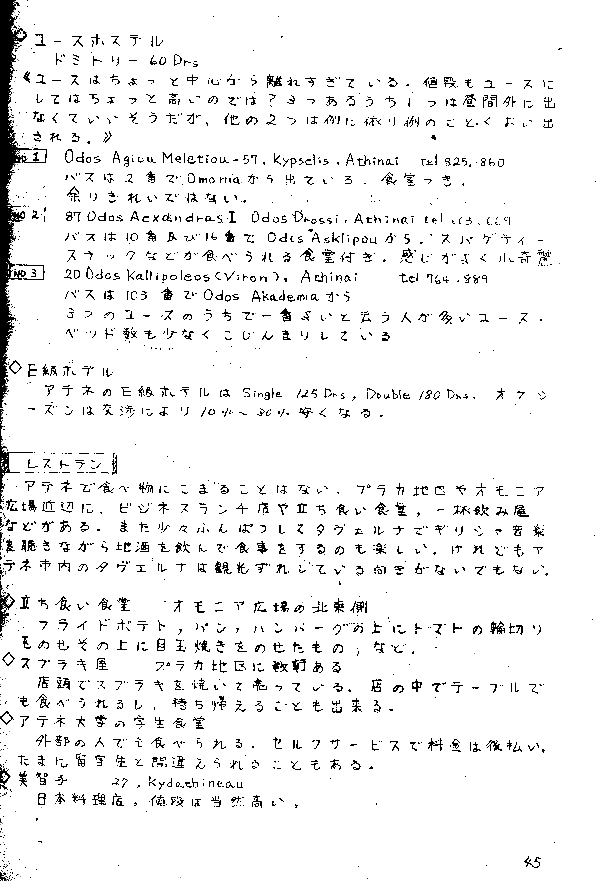 ◇ユースホステル
ドミトリー 60 Drs
《ユースはちょっと中心から離れすぎている。値段もユースに
してはちょっと高いのでは？ 3つあるうち1つは昼間外に出
なくていいそうだが、他の2つは例に依り例のごとくおい出
される。》
NO 1 Odos Agiou Meletiou-57, Kypselis, Athinai tel 825.860
バスは2番でOmoniaから出ている。食堂つき。
余りきれいではない。
NO 2 87 Odos Aexandras I Odos Drossi, Athinai tel
バスは10番及び16番で Odos Asklipouから。スパゲティー
スナックなどが食べられる食堂付き。感じがよく小奇麗
NO 3 20 Odos Kallipoleos (Viron), Athinai tel 764.889
バスは103番でOdos Akademiaから
3つのユースのうちで一番よいと云う人が多いユース。
ベッド数も少なくこじんまりしている
◇E級ホテル
アテネのE級ホテルは Single 125 Drs, Double 180 Drs. オフシ
ーズンは交渉により10%～30%安くなる。
レストラン
アテネで食べ物にこまることはない。プラカ地区やオモニア
広場近辺に、ビジネスランチ店や立ち食い食堂，一杯飲み屋
などがある。また少々ふんぱつしてタヴェルナでギリシャ音楽
を聴きながら地酒を飲んで食事をするのも楽しい。けれどもア
テネ市内のタヴェルナは観光ずれしている向きがないでもない。
◇立ち食い食堂 オモニア広場の北東側
フライドポテト，パン，ハンバーグの上にトマトの輪切り
ものやその上に目玉焼きをのせたもの，など。
◇スブラキ屋 プラカ地区に数軒ある
店頭でスブラキを焼いて売っている。店の中でテーブルで
も食べられるし，持ち帰えることも出来る。
◇アテネ大学の学生食堂
外部の人でも食べられる。セルフサービスで料金は後払い。
たまに留学生と間違えられることもある。
◇美智子 27, Kydathineau
日本料理店。値段は当然高い。
45